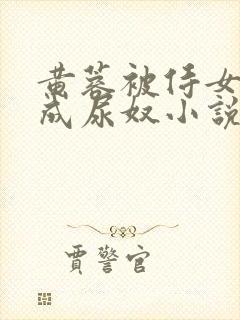 黄蓉被侍女
成尿奴小說
賈警官